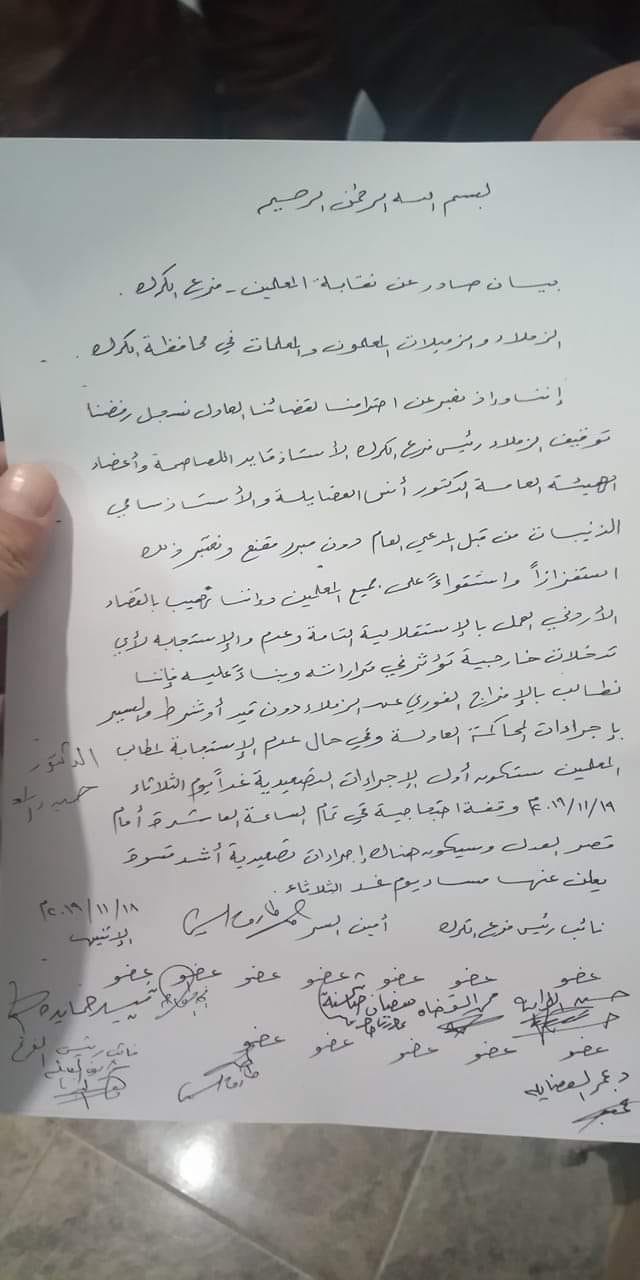 بسم الله الرحمن الرحيم
بيان صادر عن نقابة المعلمين - فرع الكرك .
الزملاء والزميلات المعلمون والمعلمات في محافظة الكرك .
إننا وإذ نعبر عن احترامنا لقضائنا العادل نسجل رفضنا
توقيف الزملاء رئيس فرع الكرك الأستاذ قايد اللصاصمة وأعضاء
الهيئة العامة الدكتور أنس العضايلة والأستاذ سامي
الذنيبات من قبل المدعي العام دون مبرر مقنع ونعتبر ذلك
استفزازاً واستقواءً على جميع المعلمين وإننا نهيب بالقضاء
الأردني العمل بالإستقلالية التامة وعدم والإستجابة لأي
تدخلات خارجية تؤثر في قراراته وبناءً عليه فإننا
نطالب بالإفراج الفوري عن الزملاء دون قيد أو شرط والسير
بإجراءات المحاكمة العادلة وفي حال عدم الإستجابة لمطالب
الدكتور
المعلمين ستكون أول الإجراءات التصعيدية غداً يوم الثلاثاء
٢٠١٩/١١/١٩م وقفة احتجاجية في تمام الساعة العاشرة أمام
قصر العدل وسيكون هناك إجراءات تصعيدية أشد قسوة
يعلن عنها مساء يوم غد الثلاثاء .
نائب رئيس فرع الكرك أمين السر ٢٠١٩/١١/١٨م
الإثنين
عضو عضو عضو عضو عضو عضو عضو
عضو عضو عضو عضو عضو
نائب رئيس الفرع
د. عمر العضايله